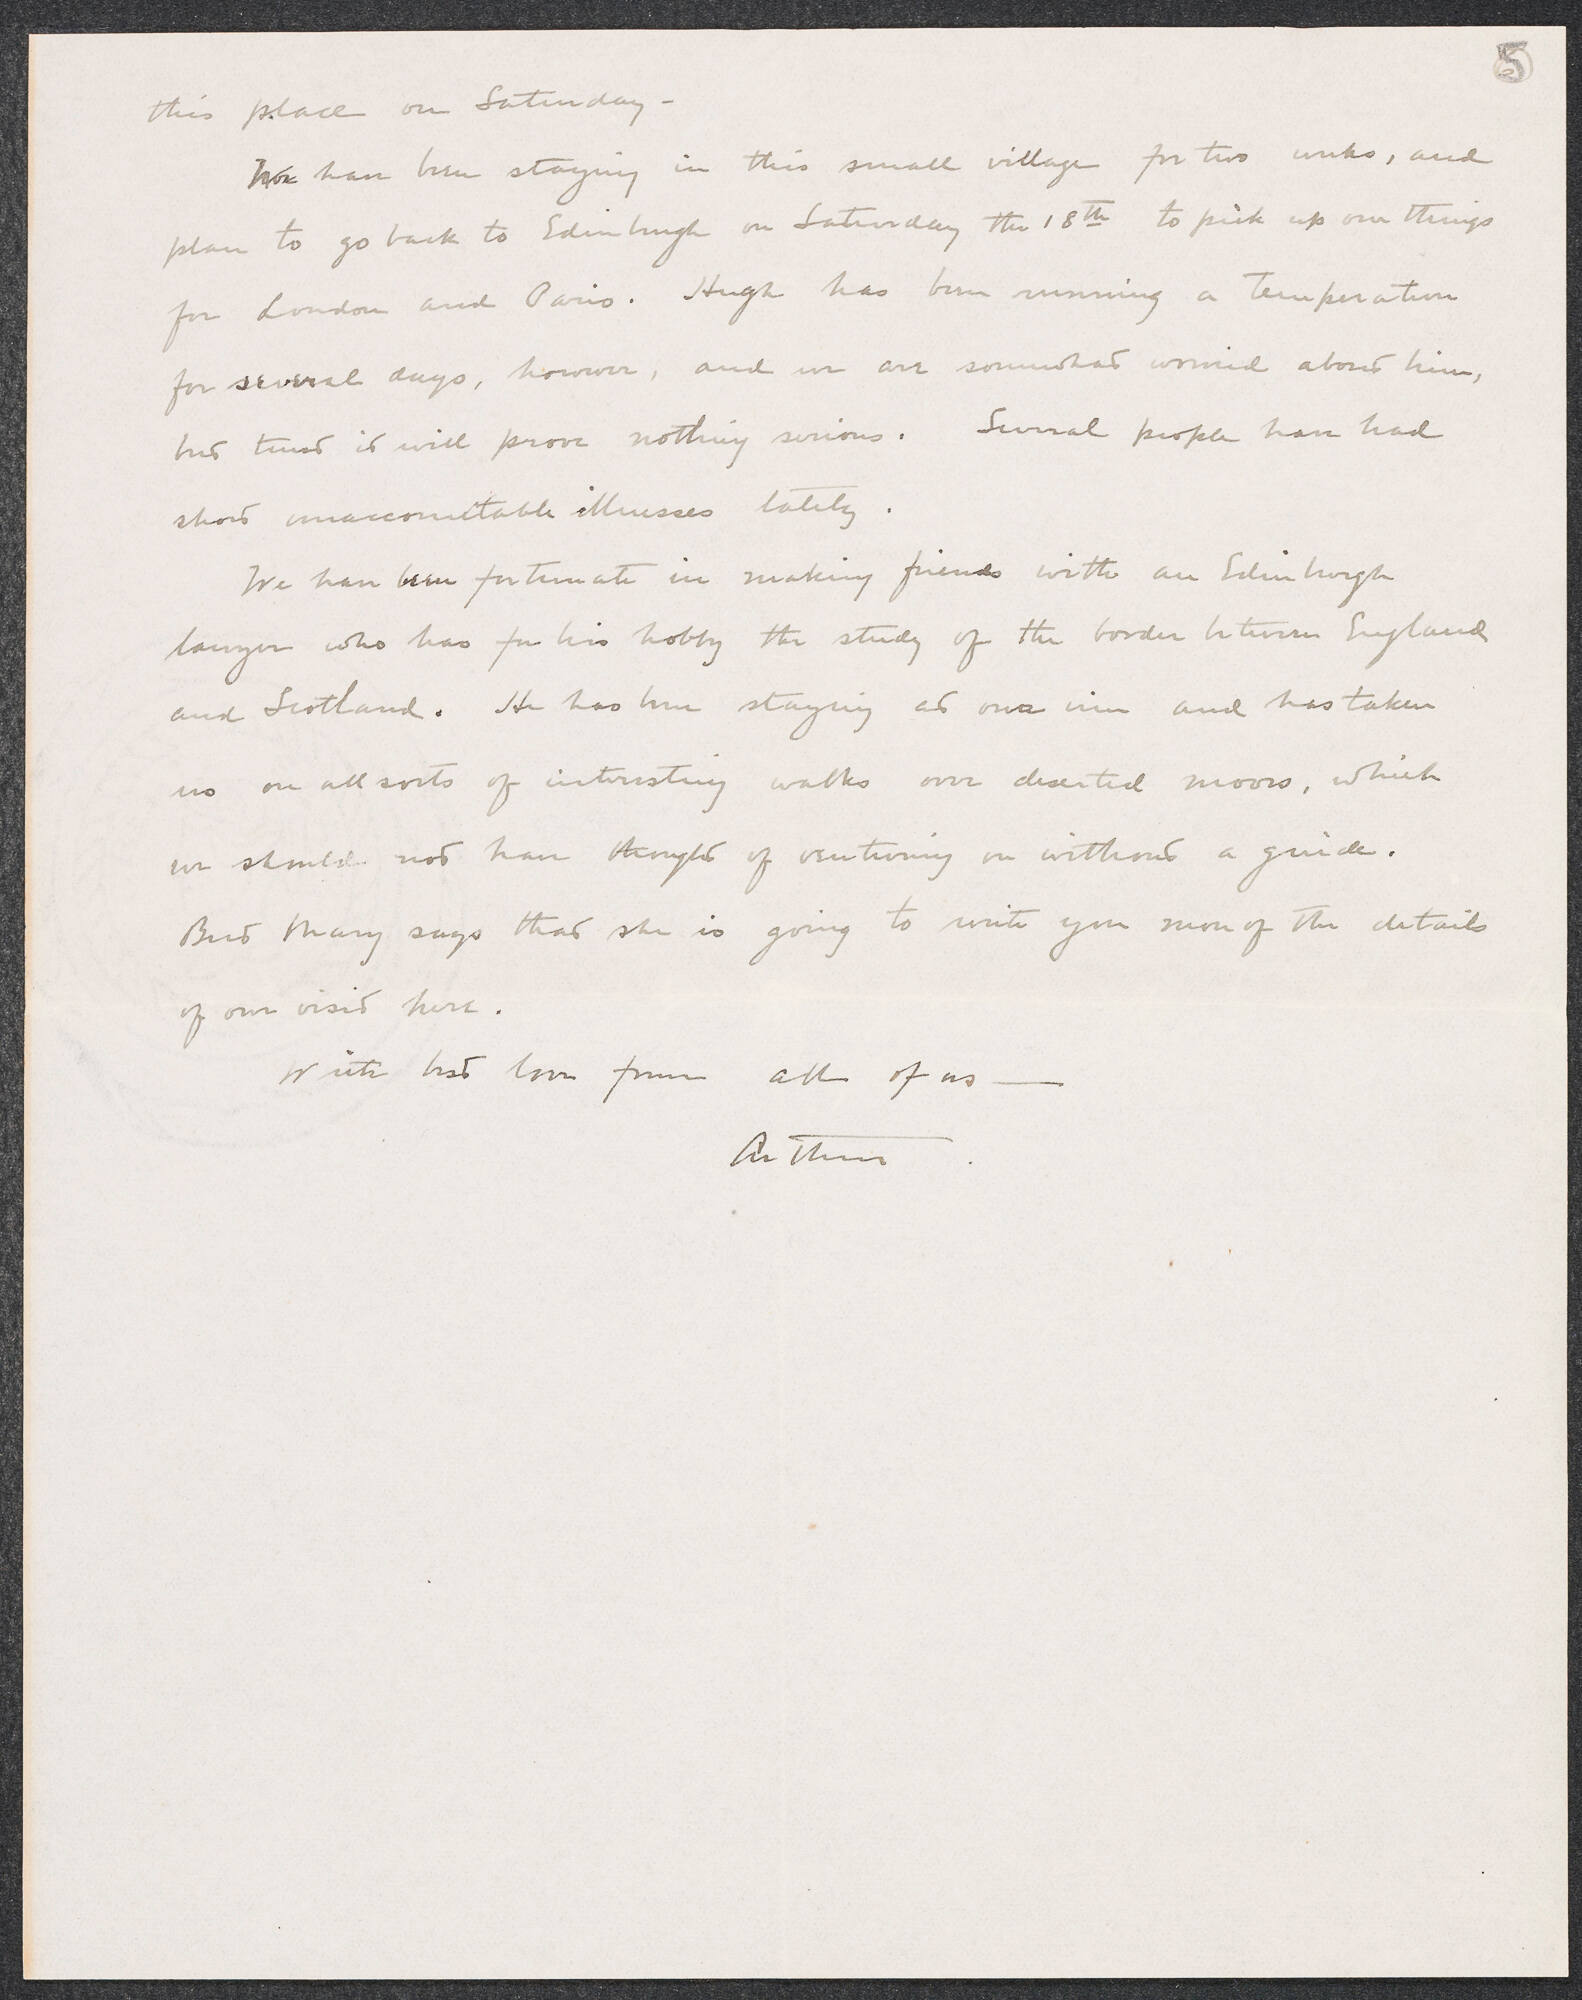 5
this place on Saturday -
We have been staying in this small village for two weeks, and
plan to go back to Edinburgh on Saturday the 18th to pick up our things
for London and Paris. Hugh has been running a temperature
for several days, however, and we are somewhat worried about him,
but trust it will prove nothing serious. Several people have had
short unaccountable illnesses lately.
We have been fortunate in making friends with an Edinburgh
lawyer who has for his hobby the study of the border between England
and Scotland. He has been staying at our inn and has taken
us on all sorts of interesting walks over deserted moors, which
we should not have thought of venturing on without a guide.
But Mary says that she is going to write you more of the details
of our visit here.
With best love from all of us —
Arthur.